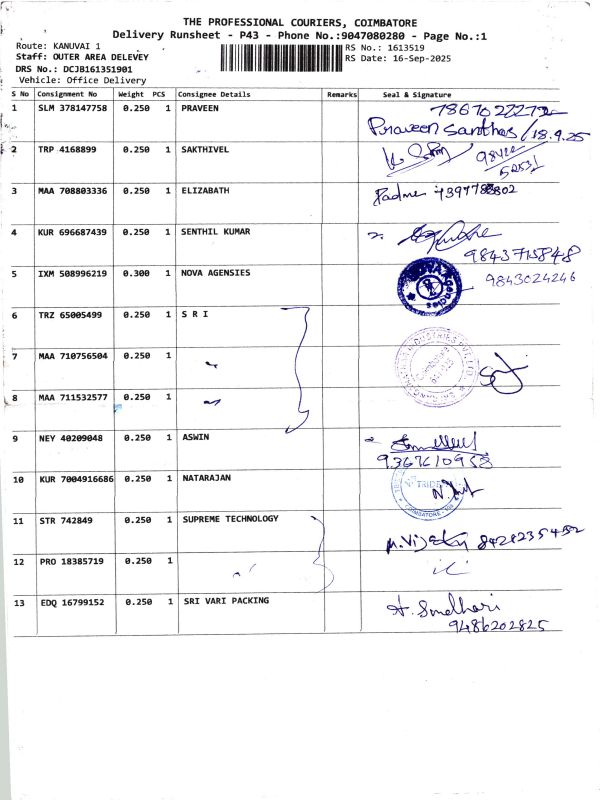 THE PROFESSIONAL COURIERS, COIMBATORE
Delivery Runsheet - P43 - Phone No.:9047080280 - Page No.:1
Route: KANUVAI 1
Staff: OUTER AREA DELEVEY
DRS No.: DCJB161351901
Vehicle: Office Delivery
RS No.: 1613519
RS Date: 16-Sep-2025
S No Consignment No Weight PCS Consignee Details Remarks Seal & Signature
1 SLM 378147758 0.250 1 PRAVEEN
Praveen Santhos/18.9.25
2 TRP 4168899 0.250 1 SAKTHIVEL
3 MAA 708803336 0.250 1 ELIZABATH Padma
4 KUR 696687439 0.250 1 SENTHIL KUMAR
9843715848
5 IXM 508996219 0.300 1 NOVA AGENSIES 9843024246
6 TRZ 65005499 0.250 1 S R I
7 MAA 710756504 0.250 1 "
8 MAA 711532577 0.250 1 "
9 NEY 40209048 0.250 1 ASWIN
9367610958
10 KUR 7004916686 0.250 1 NATARAJAN
11 STR 742849 0.250 1 SUPREME TECHNOLOGY
12 PRO 18385719 0.250 1 "
13 EDQ 16799152 0.250 1 SRI VARI PACKING
9486202825